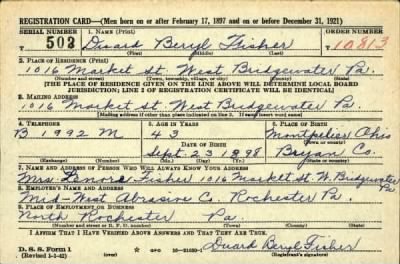 REGISTRATION CARD—(Men born on or after February 17, 1897 and on or before December 31, 1921)
SERIAL NUMBER 1. NAME (Print) ORDER NUMBER
502 Duard Beryl Fisher 10813
(First) (Middle) (Last)
2. PLACE OF RESIDENCE (Print)
1016 Market St West Bridgewater Pa.
(Number and street) (Town, township, village, or city) (County) (State)
[THE PLACE OF RESIDENCE GIVEN ON THE LINE ABOVE WILL DETERMINE LOCAL BOARD
JURISDICTION; LINE 2 OF REGISTRATION CERTIFICATE WILL BE IDENTICAL]
3. MAILING ADDRESS
1016 Market St West Bridgewater Pa.
[Mailing address if other than place indicated on line 2. If same insert word same]
4. TELEPHONE 5. AGE IN YEARS 6. PLACE OF BIRTH
B 1992 M 43 Montpelier Ohio
DATE OF BIRTH (Town or county)
Sept. 23 1898 Co.
(Exchange) (Number) (Mo.) (Day) (Yr.) (State or country)
7. NAME AND ADDRESS OF PERSON WHO WILL ALWAYS KNOW YOUR ADDRESS
Mrs. Fisher 1016 Market St W. Bridgewater Pa
8. EMPLOYER'S NAME AND ADDRESS
Mid-West Abrasive Co. Rochester Pa.
9. PLACE OF EMPLOYMENT OR BUSINESS
North Rochester Pa.
(Number and street or R. F. D. number) (Town) (County) (State)
I AFFIRM THAT I HAVE VERIFIED ABOVE ANSWERS AND THAT THEY ARE TRUE.
D. S. S. Form 1
(Revised 1-1-42) (over) Duard Beryl Fisher
(Registrant's signature)